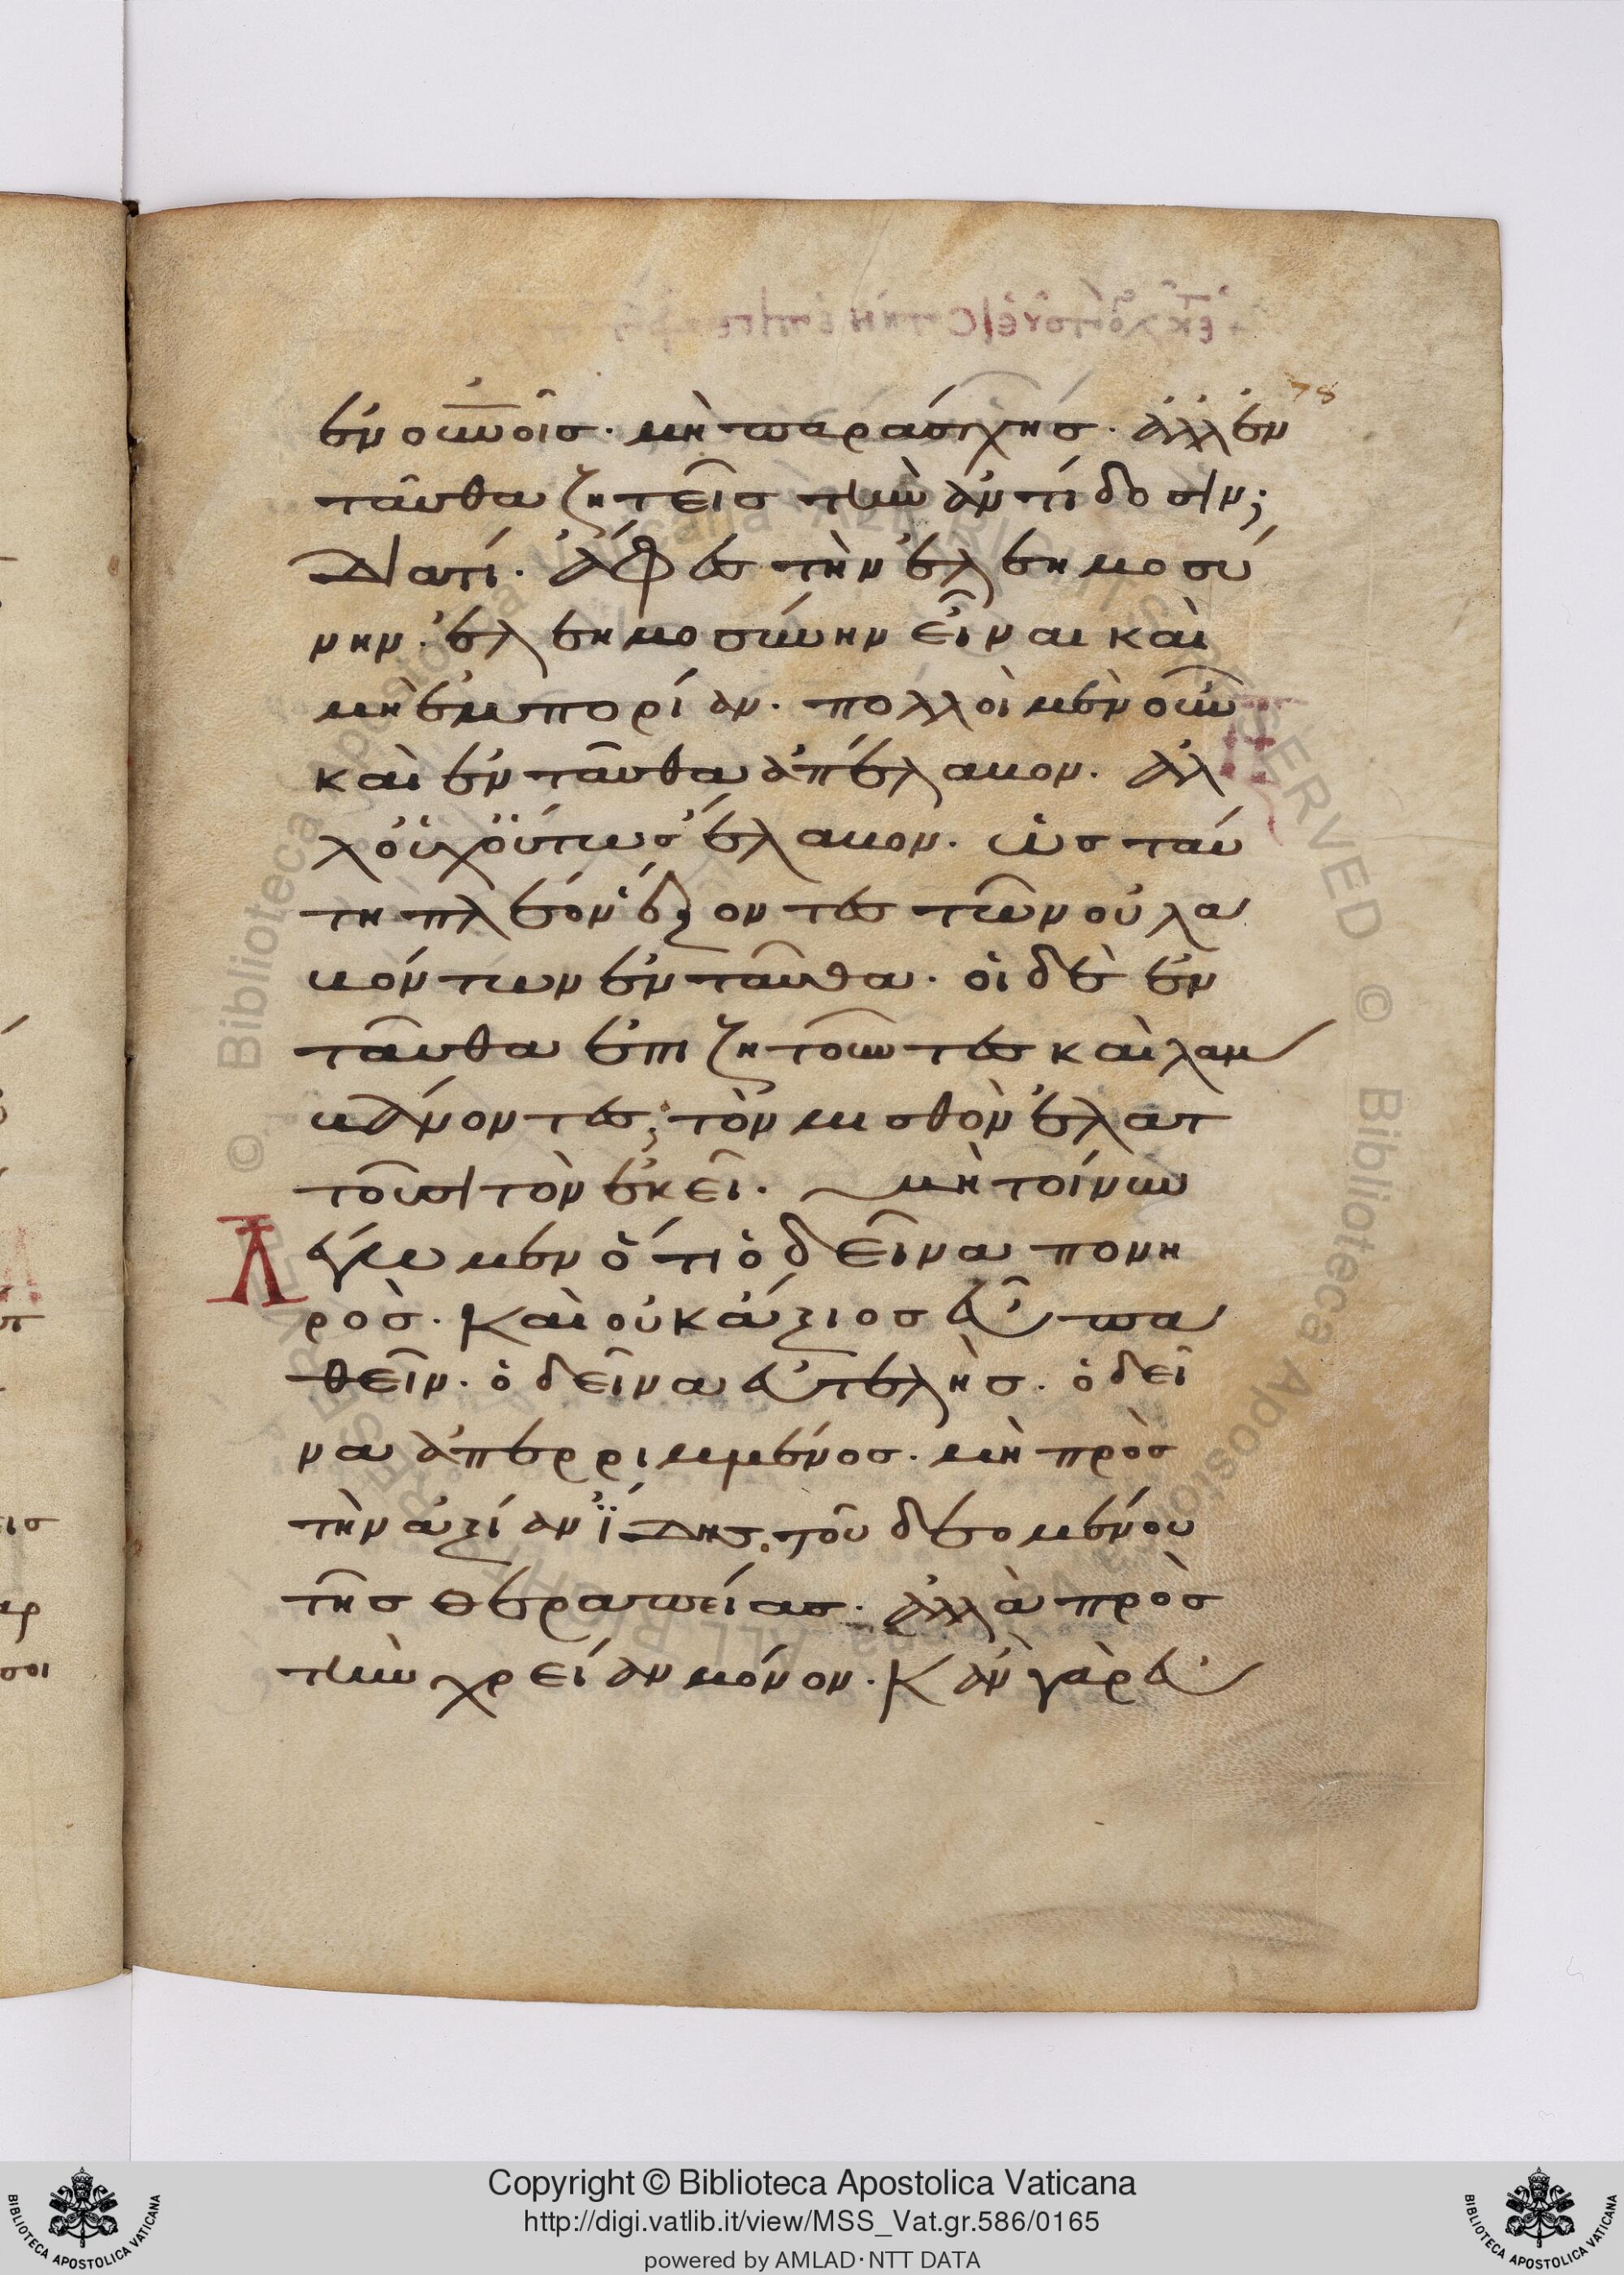 78
ἐν οὐνοῖς· μὴ παράσχης· ἀλλ ἐν
ταῦθα ζητεῖς τὴν ἀντίδοσιν;
Διατί· ἄφες τὴν ἐλεημοσύ
νην· ἐλεημοσύνην εἶναι καὶ
μὴ ἐμπορίαν· πολλοὶ μὲν οὖν
καὶ ἐνταῦθα ἀπέλαβον· ἀλ
λ οὐχ οὕτως ἔλαβον· ὡς ταύ
τη πλέον ἕξοντες τῶν οὐ λα
βόντων ἐνταῦθα· οἱ δὲ ἐν
ταῦθα ἐπιζητοῦντες καὶ λαμ
βάνοντες, τὸν μισθὸν ἐλατ
τοῦσι τὸν ἐκεῖ· μὴ τοίνυν
Λέγωμεν ὅτι ὁ δεῖνα πονη
ρός· Καὶ οὐκ ἄξιος εὖ πα
θεῖν· ὁ δεῖνα εὐτελὴς· ὁ δεῖ
να ἀπερριμμένος· μὴ πρὸς
τὴν ἀξίαν ἴδης τοῦ δεομένου
τῆς θεραπείας· ἀλλὰ πρὸς
τὴν χρείαν μόνον· Κἂν γὰρ εὐ
© Biblioteca Apostolica Vaticana ALL RIGHTS RESERVED
Copyright © Biblioteca Apostolica Vaticana
http://digi.vatlib.it/view/MSS_Vat.gr.586/0165
powered by AMLAD·NTT DATA
BIBLIOTECA APOSTOLICA VATICANA
BIBLIOTECA APOSTOLICA VATICANA